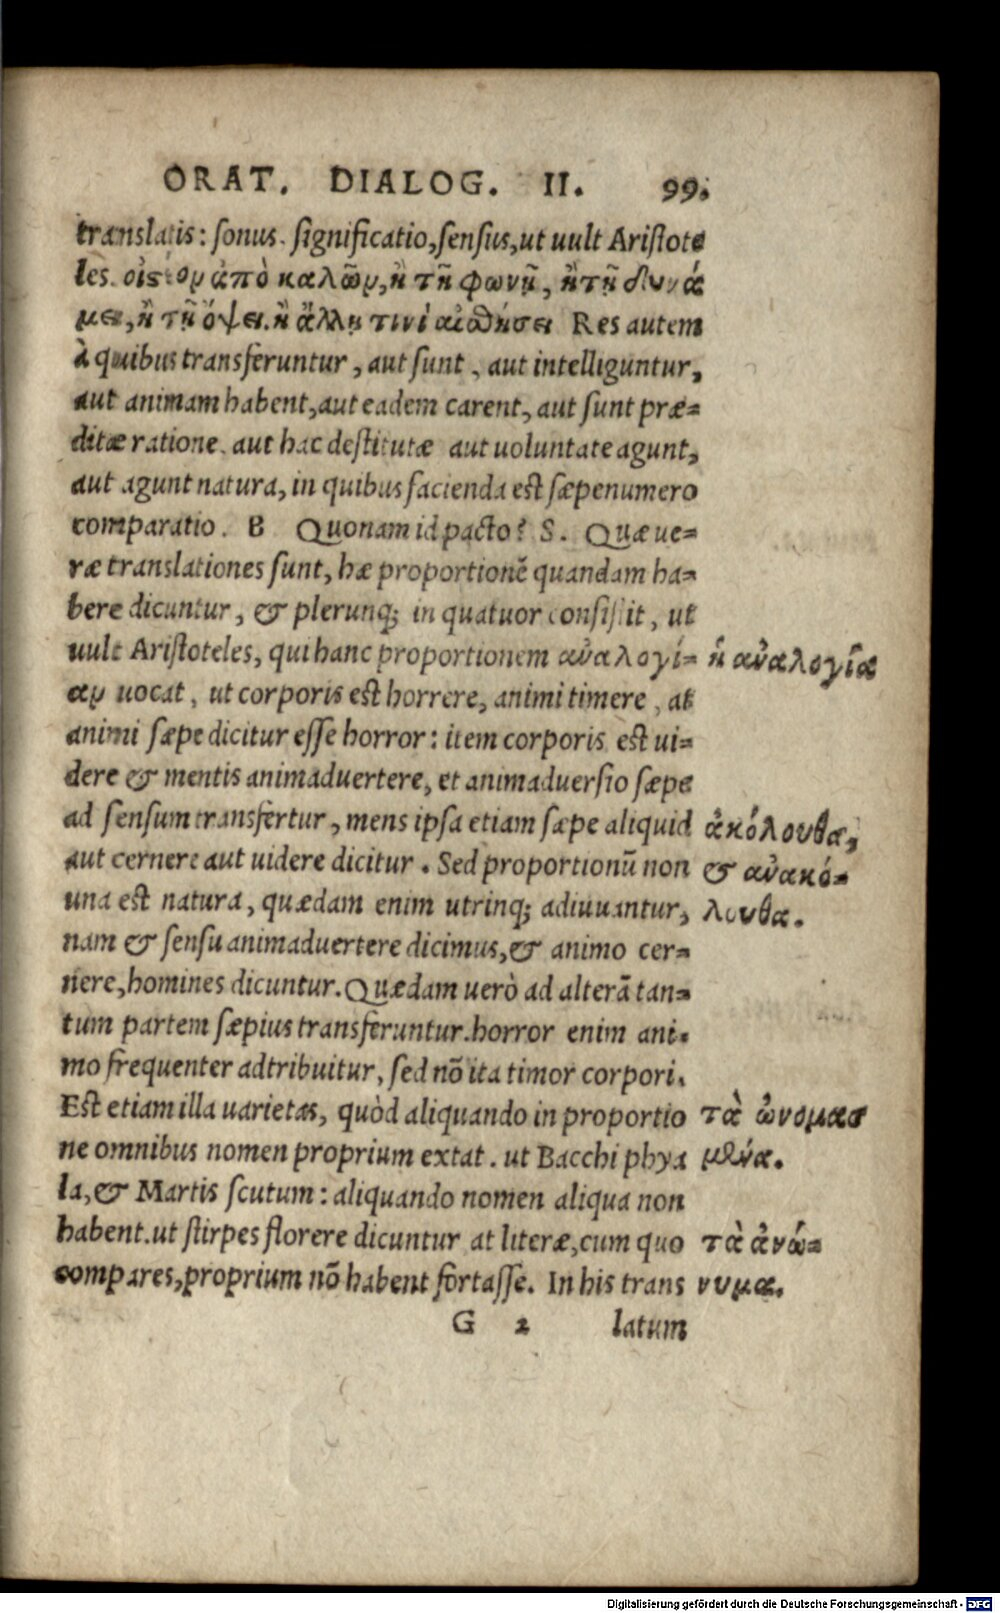 ORAT. DIALOG. II. 99.
translatis: sonus. significatio, sensus, ut uult Aristote
les. οἰστέον ἀπὸ καλῶν, ἢ τῇ φωνῇ, ἢ τῇ δυνά
μει, ἢ τῇ ὄψει. ἢ ἄλλῃ τινὶ αἰσθήσει Res autem
à quibus transferuntur, aut sunt, aut intelliguntur,
aut animam habent, aut eadem carent, aut sunt præ=
ditæ ratione. aut hac destitutæ aut uoluntate agunt,
aut agunt natura, in quibus facienda est sæpenumero
comparatio. B Quonam id pacto? S. Quæ ue=
ræ translationes sunt, hæ proportionē quandam ha=
bere dicuntur, & plerunq; in quatuor consistit, ut
uult Aristoteles, qui hanc proportionem ἀναλογί=
αν uocat, ut corporis est horrere, animi timere, at
animi sæpe dicitur esse horror: item corporis est ui=
dere & mentis animaduertere, et animaduersio sæpe
ad sensum transfertur, mens ipsa etiam sæpe aliquid
aut cernere aut uidere dicitur. Sed proportionū non
una est natura, quædam enim utrinq; adiuuantur,
nam & sensu animaduertere dicimus, & animo cer=
nere, homines dicuntur. Quædam uerò ad alterā tan=
tum partem sæpius transferuntur. horror enim ani=
mo frequenter adtribuitur, sed nō ita timor corpori.
Est etiam illa uarietas, quòd aliquando in proportio
ne omnibus nomen proprium extat. ut Bacchi phya
la, & Martis scutum: aliquando nomen aliqua non
habent. ut stirpes florere dicuntur at literæ, cum quo
compares, proprium nō habent fortasse. In his trans
G 2 latum
ἡ ἀναλογία
ἀκόλουθα,
& ἀνακό=
λουθα.
τὰ ὠνομασ
μένα.
τὰ ἀνώ=
νυμα.
Digitalisierung gefördert durch die Deutsche Forschungsgemeinschaft - DFG